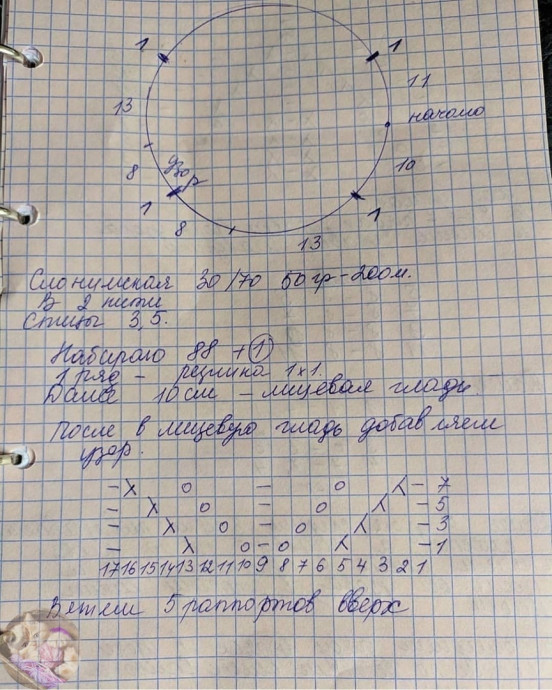 1
1
11
13
начало
8
узор
10
1
8
1
13
Слонимская 30/70 50гр-200м.
В 2 нити
Спицы 3,5.
Набираю 88 + 1
1 ряд - резинка 1х1.
Далее 10 см - лицевая гладь.
После в лицевую гладь добавляем
узор.
- X O - O λ - 7
- X O O λ - 5
- X O - O λ - 3
- X O - O λ - 1
17 16 15 14 13 12 11 10 9 8 7 6 5 4 3 2 1
Вяжем 5 раппортов вверх